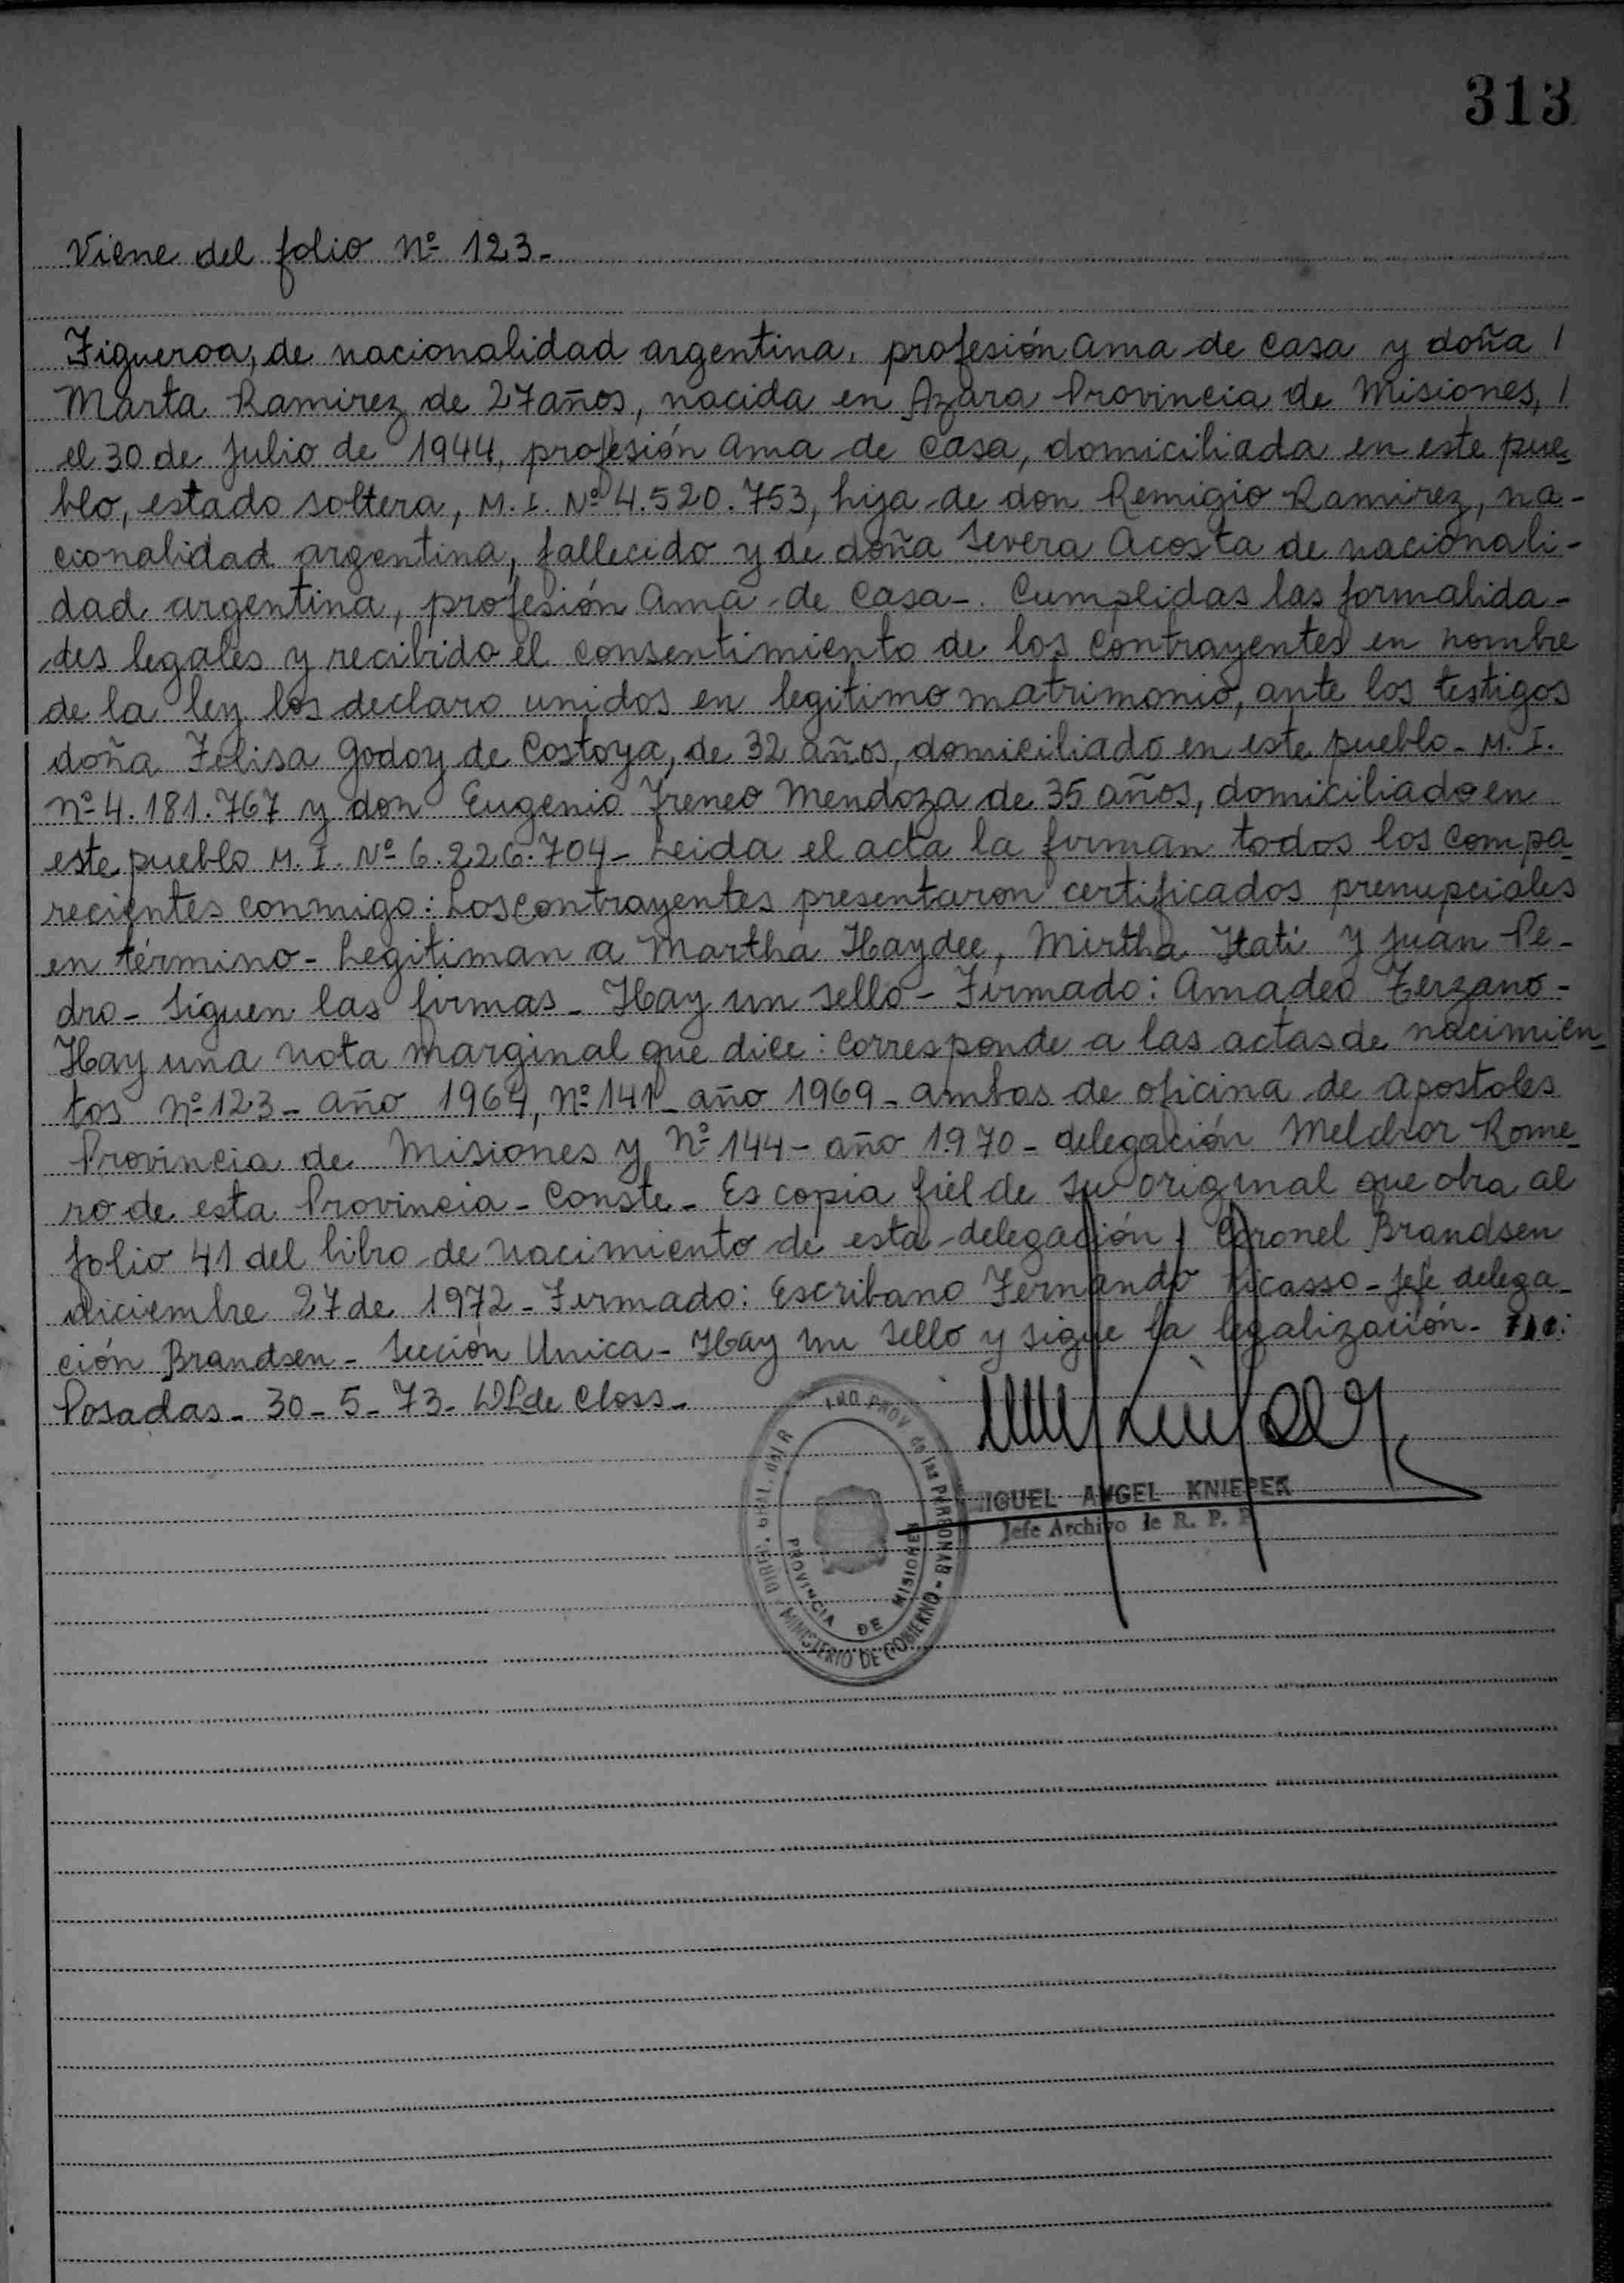 313
Viene del folio Nº 123-
Figueroa, de nacionalidad argentina, profesión ama de casa y doña /
Marta Ramirez de 27 años, nacida en Azara Provincia de Misiones, /
el 30 de Julio de 1944, profesión ama de casa, domiciliada en este pue-
blo, estado soltera, M. I. Nº 4.520.753, hija de don Remigio Ramirez, na-
cionalidad argentina, fallecido y de doña Severa Acosta de nacionali-
dad argentina, profesión ama de casa-. Cumplidas las formalida-
des legales y recibido el consentimiento de los contrayentes en nombre
de la ley los declaro unidos en legitimo matrimonio, ante los testigos
doña Felisa Godoy de Costoya, de 32 años, domiciliado en este pueblo- M. I.
Nº 4.181.767 y don Eugenio Ireneo Mendoza de 35 años, domiciliado en
este pueblo M. I. Nº 6.226.704- Leida el acta la firman todos los compa-
recientes conmigo: Los contrayentes presentaron certificados prenupciales
en término- Legitiman a Martha Haydee, Mirtha Itatí y Juan Pe-
dro- Siguen las firmas- Hay un sello- Firmado: Amadeo Terzano-
Hay una nota marginal que dice: Corresponde a las actas de nacimien-
tos Nº 123- año 1964, Nº 141- año 1969- ambas de oficina de apostoles
Provincia de Misiones y Nº 144- año 1.970- delegación Melchor Rome-
ro de esta Provincia- Conste- Es copia fiel de su original que obra al
folio 41 del libro de nacimiento de esta delegación / Coronel Brandsen
diciembre 27 de 1972- Firmado: Escribano Fernando Picasso- Jefe delega-
ción Brandsen- Sección Unica- Hay un sello y sigue la legalización-
Posadas- 30- 5- 73- de Closs-
IGUEL ANGEL KNIEPEK
Jefe Archivo de R. P. P
PROV de las PERSONAS - MINISTERIO DE GOBIERNO
PROVINCIA DE MISIONES